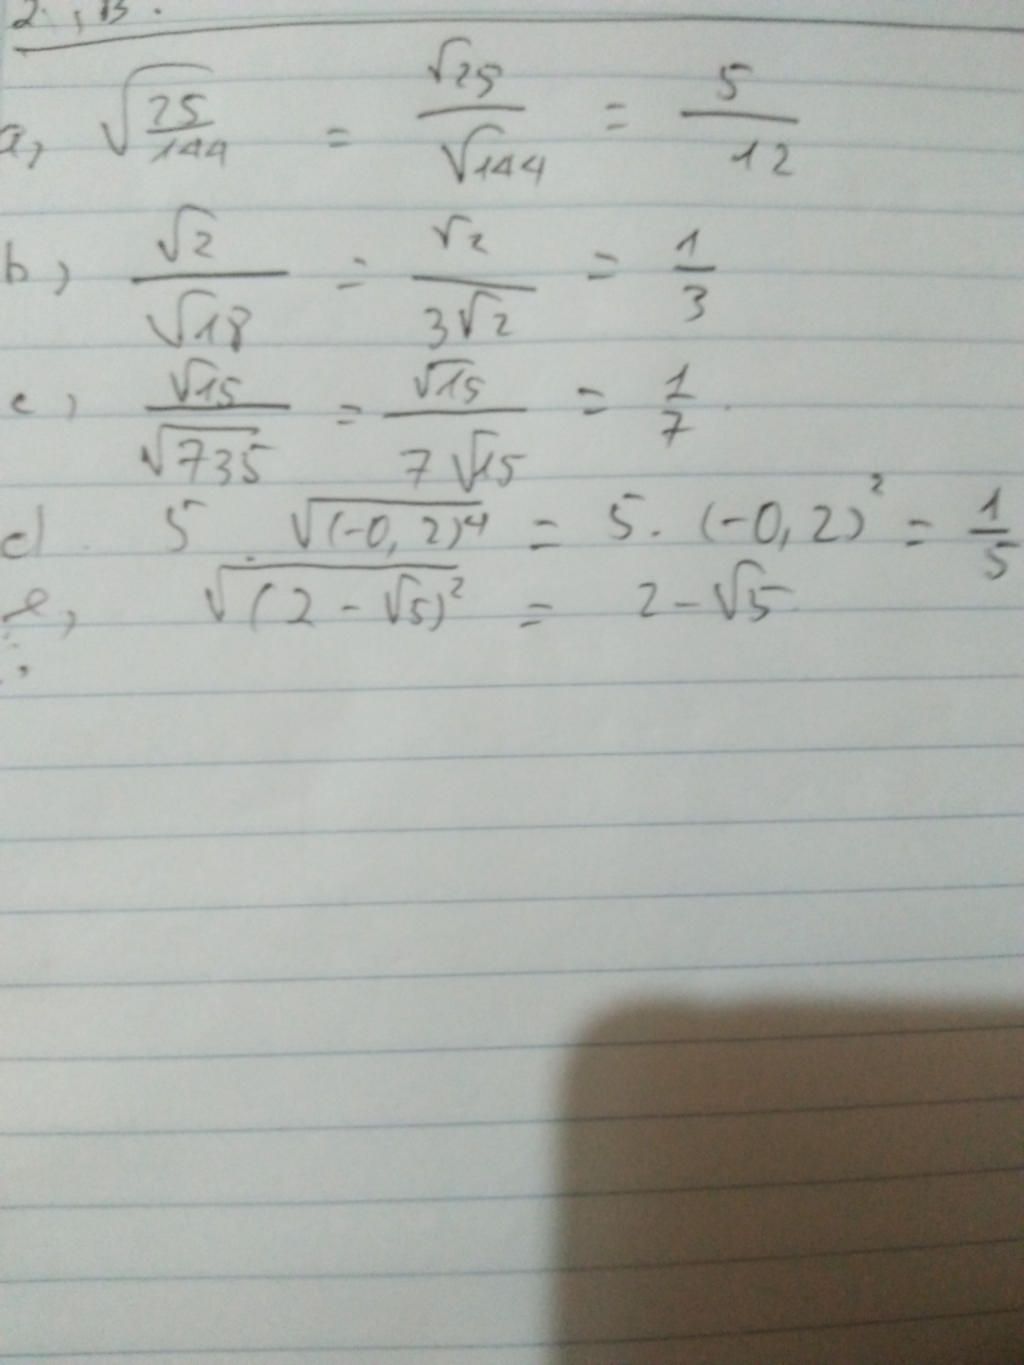 2. , B.
a, √(25/144) = √25/√144 = 5/12
b, √2/√18 = √2/3√2 = 1/3
c, √15/√735 = √15/7√15 = 1/7.
d. 5 . √(-0,2)⁴ = 5. (-0,2)² = 1/5
e, √(2-√5)² = 2-√5